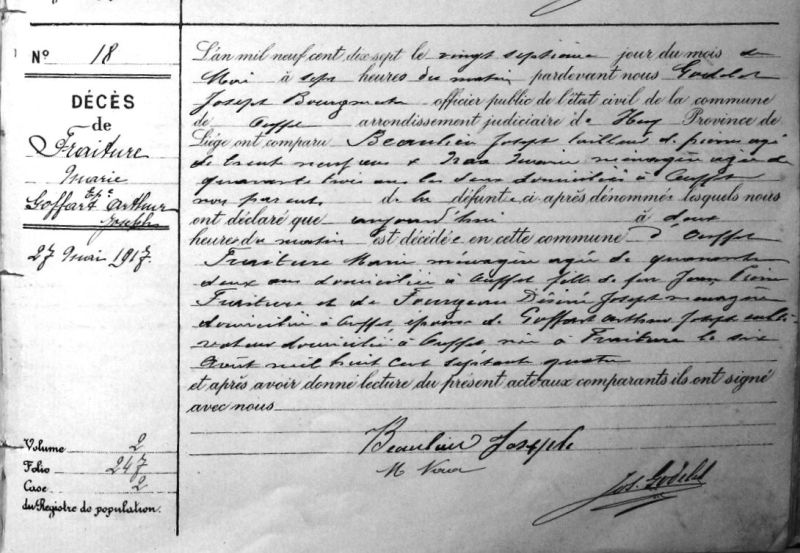 N° 18
DÉCÈS
de
Fraiture
Marie
Goffart Arthur
Joseph
27 Mai 1917.
Volume 2
Folio 247
Case 2
du Registre de population.
L'an mil neuf cent dix sept le vingt septième jour du mois de
Mai à sept heures du matin pardevant nous Godelet
Joseph Bourgmestre officier public de l'état civil de la commune
de Ouffet arrondissement judiciaire de Huy Province de
Liége ont comparu Beaulieu Joseph tailleur de pierres agé
de trente neuf ans & ménagère agée de
quarante trois ans les deux domiciliés à Ouffet
non parents de la défunte ci après dénommée lesquels nous
ont déclaré que aujourd'hui à deux
heures du matin est décédée en cette commune d'Ouffet
Fraiture Marie ménagère agée de quarante
deux ans domiciliée à Ouffet fille de feu Jean Pierre
Fraiture et de Désirée Joseph ménagère
domiciliée à Ouffet épouse de Goffart Arthur Joseph culti-
vateur domicilié à Ouffet née à Fraiture le six
Août mil huit cent septante quatre
et après avoir donné lecture du présent acte aux comparants ils ont signé
avec nous
Beaulieu Joseph
M
Jos. Godelet